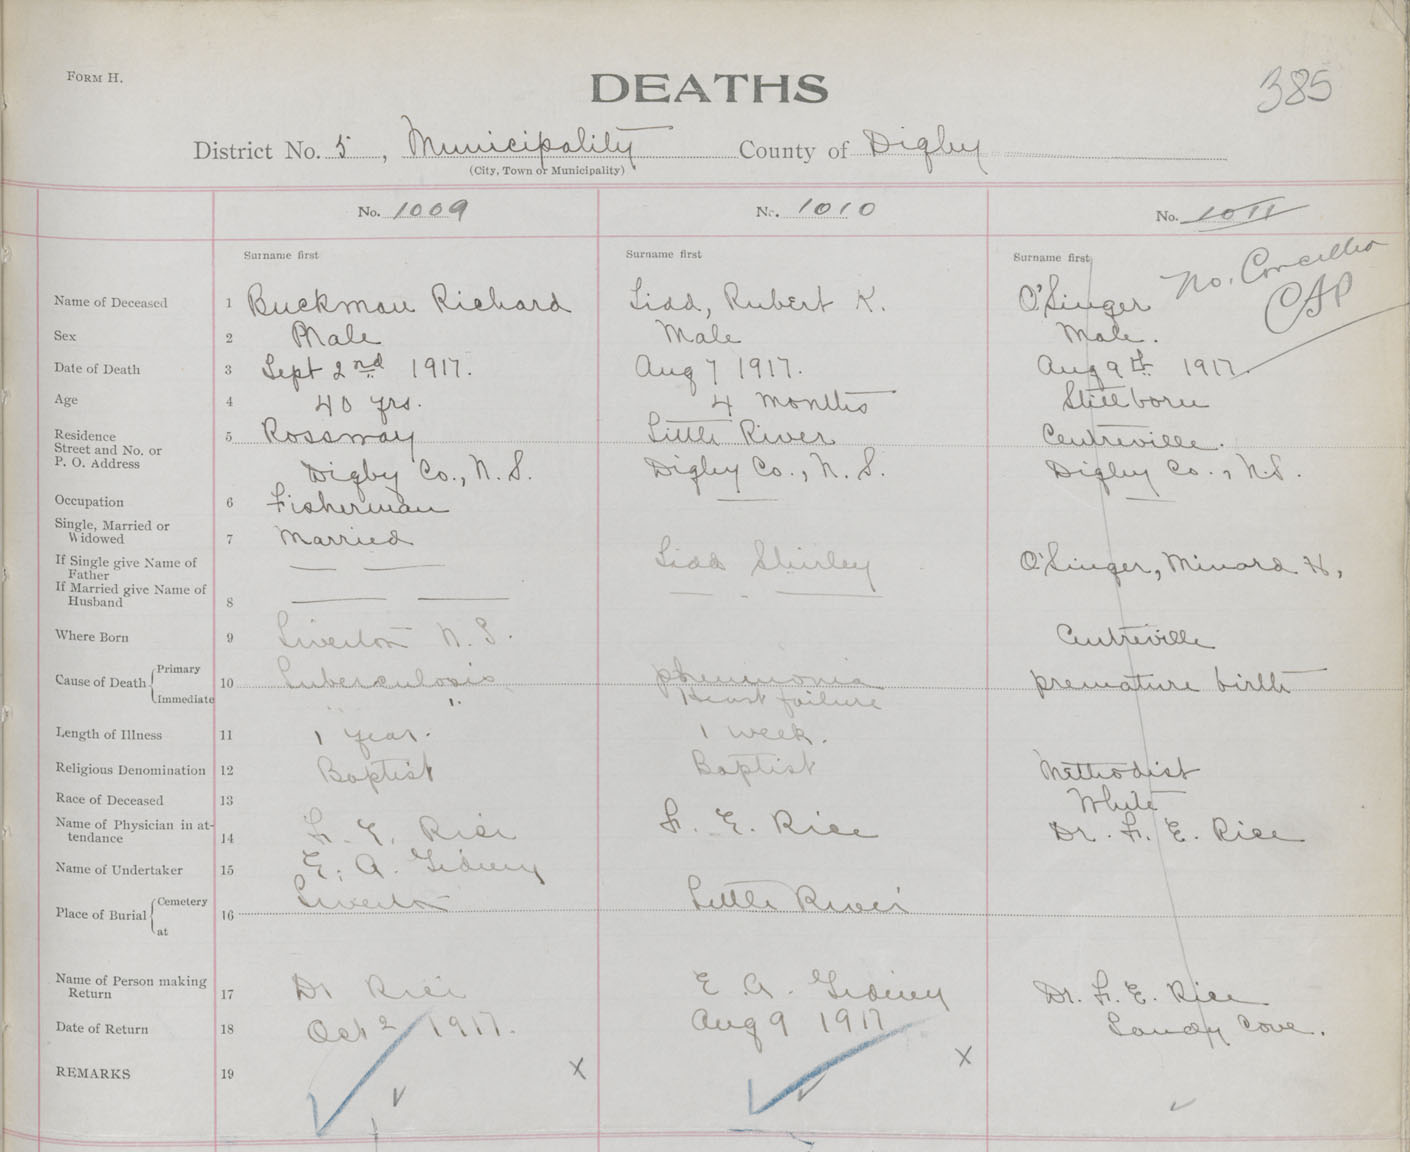 FORM H.
DEATHS
385
District No. 5, Municipality County of Digby
(City, Town or Municipality)
No. 1009
No. 1010
No. 1011
Surname first
Surname first
Surname first
No. Cancelled
CAP
Name of Deceased 1 Buckman Richard Lidd, Rubert K. O'Linger
Sex 2 Male Male Male.
Date of Death 3 Sept 2nd 1917. Aug 7 1917. Aug 9th 1917.
Age 4 40 yrs. 4 months Stillborn
Residence
Street and No. or
P. O. Address
5 Rossway Little River Centreville.
Digby Co., N. S. Digby Co., N. S. Digby Co., N.S.
Occupation 6 Fisherman
Single, Married or
Widowed 7 Married
If Single give Name of
Father Lidd Shirley O'Linger, Minard H,
If Married give Name of
Husband 8
Where Born 9 Tiverton N. S. Centreville
Cause of Death Primary 10 Tuberculosis pheumonia premature birth
Immediate " " Heart failure
Length of Illness 11 1 year. 1 week.
Religious Denomination 12 Baptist Baptist Methodist
Race of Deceased 13 White
Name of Physician in at-
tendance 14 F. E. Rice F. E. Rice Dr. F. E. Rice
Name of Undertaker 15 E. A. Gidney
Place of Burial Cemetery 16 Tiverton Little River
at
Name of Person making
Return 17 Dr Rice E. A. Gidney Dr. F. E. Rice
Date of Return 18 Oct 2 1917. Aug 9 1917 Sandy Cove.
REMARKS 19 x x